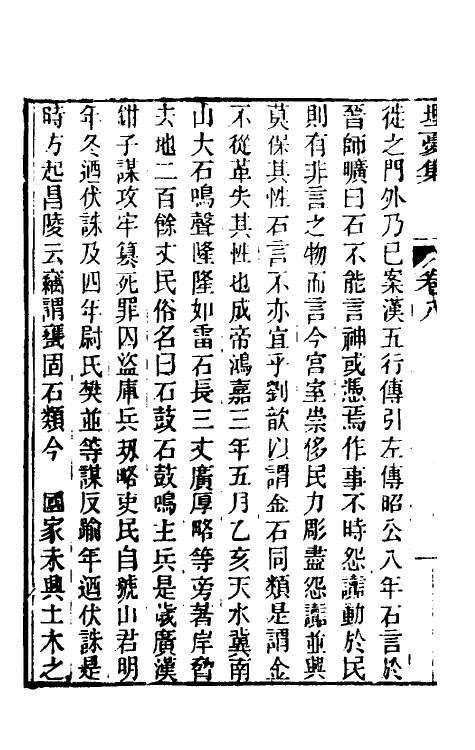 埋憂集
卷八
徙之門外乃已案漢五行傳引左傳昭公八年石言於
晉師曠曰石不能言神或憑焉作事不時怨讟動於民
則有非言之物而言今宮室崇侈民力彫盡怨讟並興
莫保其性石言不亦宜乎劉歆以謂金石同類是謂金
不從革失其性也成帝鴻嘉三年五月乙亥天水冀南
山大石鳴聲隆隆如雷石長三丈廣厚略等旁著岸脅
去地二百餘丈民俗名曰石鼓石鼓鳴主兵是歲廣漢
鉗子謀攻牢篡死罪囚盜庫兵刼略吏民自號山君明
年冬迺伏誅及四年尉氏樊並等謀反踰年迺伏誅是
時方起昌陵云竊謂甕固石類今　國家未興土木之